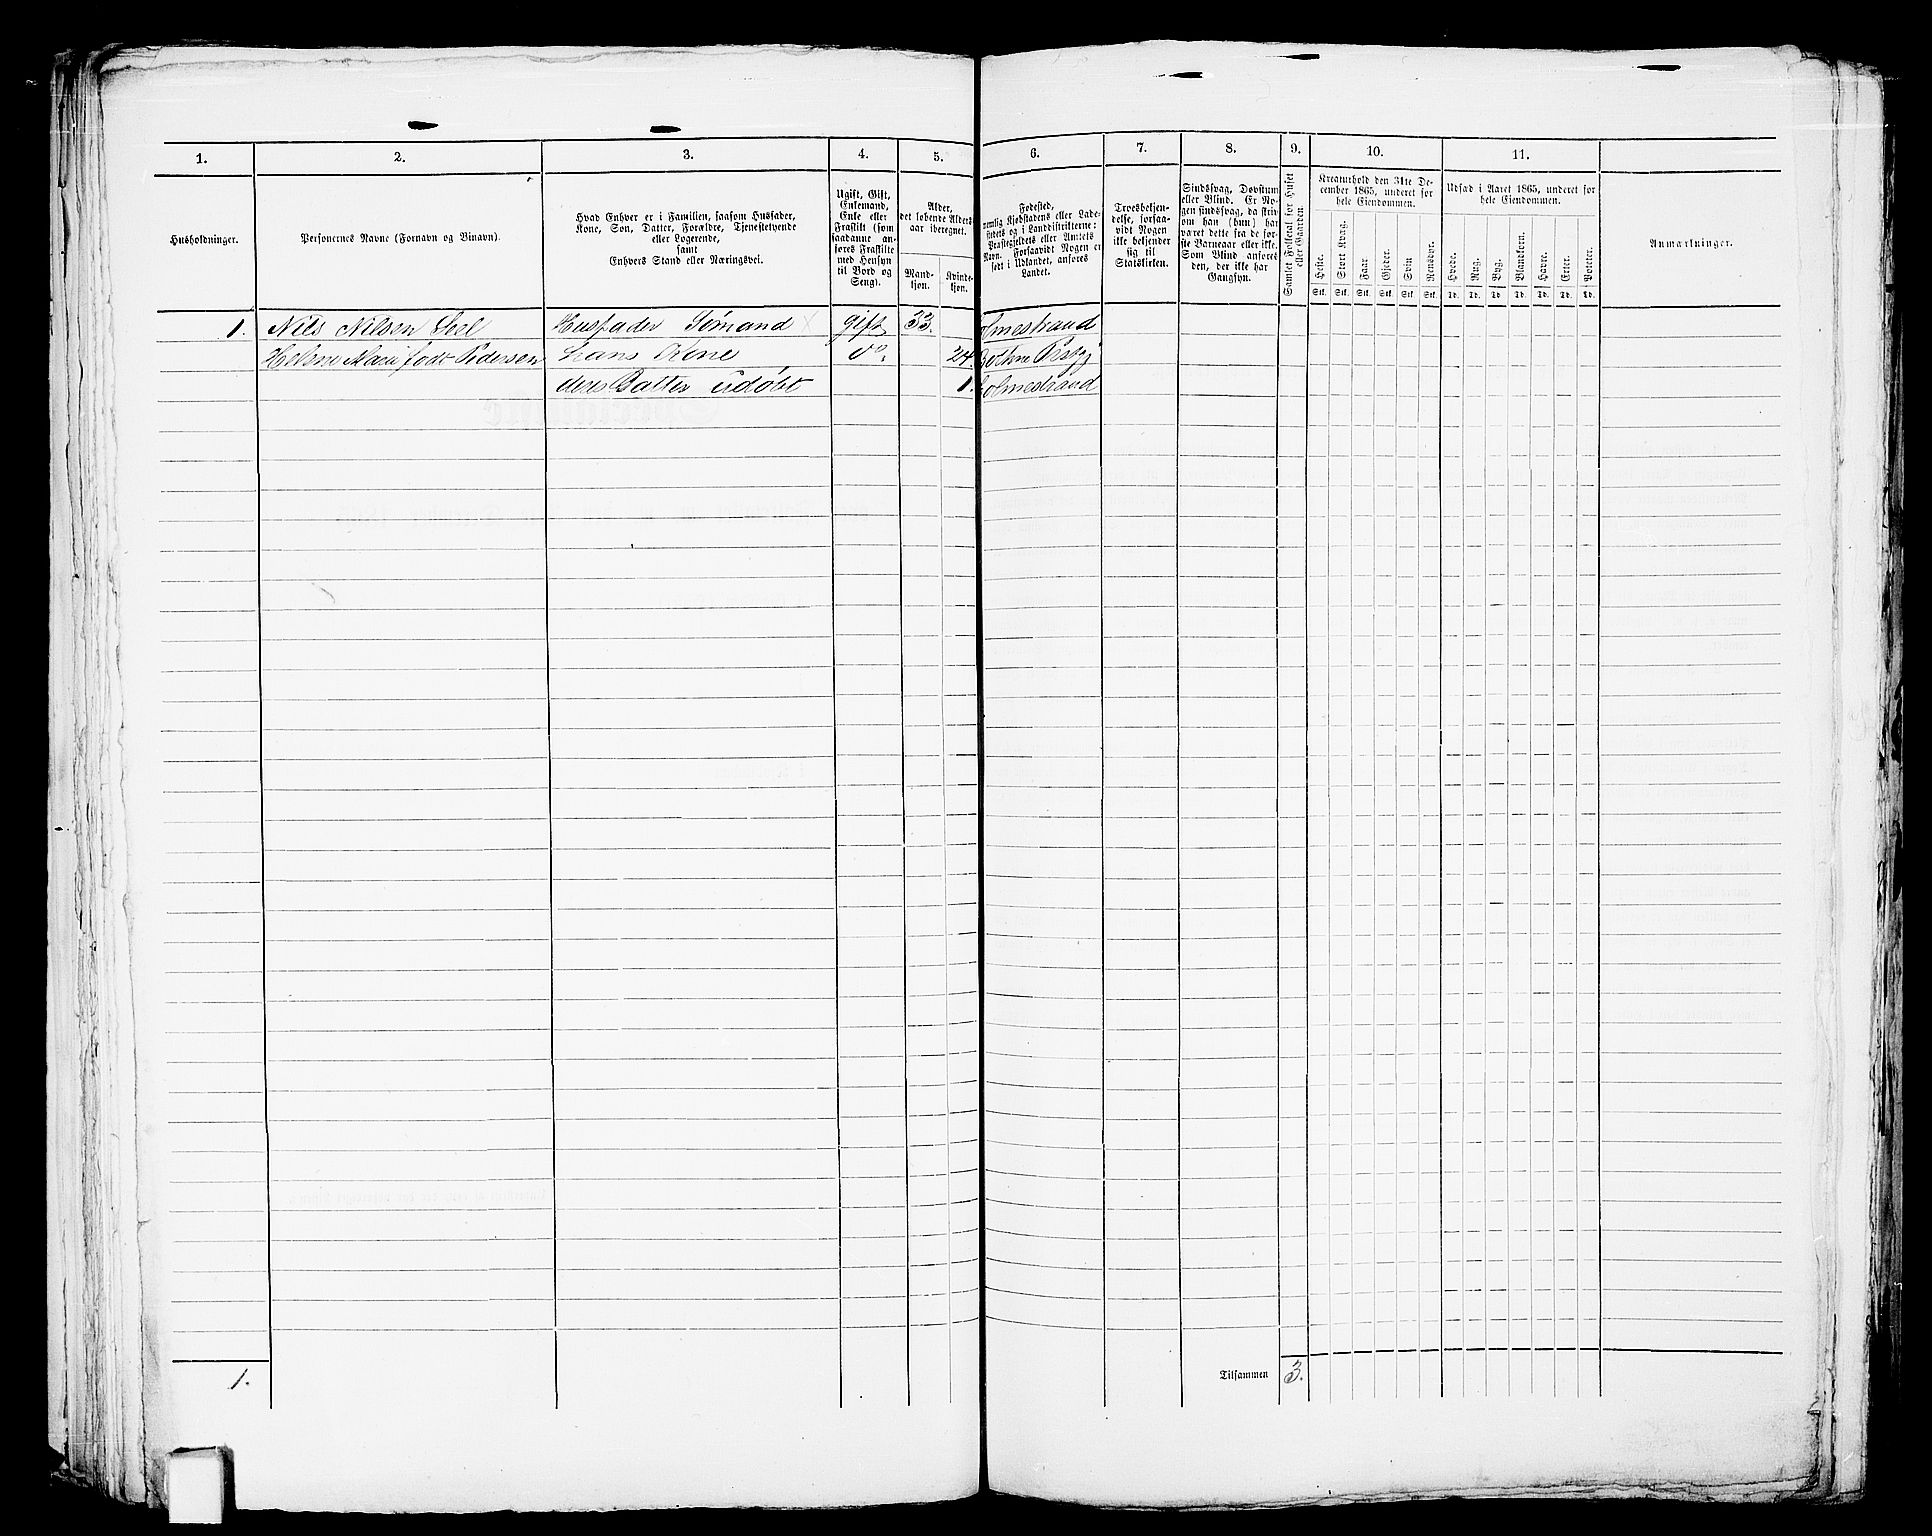 1. 2. 3. 4. 5. 6. 7. 8. 9. 10. 11.
Husholdninger.
Personernes Navne (Fornavn og Binavn).
Hvad Enhver er i Familien, saasom Husfader,
Kone, Søn, Datter, Forældre, Tjenestetyende
eller Logerende,
samt
Enhvers Stand eller Næringsvei.
Ugift, Gift,
Enkemand,
Enke eller
Fraskilt (som
saadanne an-
føres Fraskilte
med Hensyn
til Bord og
Seng).
Alder,
det løbende Alders-
aar iberegnet.
Mand-
kjøn.
Kvinde-
kjøn.
Fødested,
nemlig Kjøbstadens eller Lade-
stedets og i Landdistrikterne:
Præstegjeldets eller Amtets
Navn. Forsaavidt Nogen er
født i Udlandet, anføres
Landet.
Troesbekjen-
delse, forsaa-
vidt Nogen
ikke bekjender
sig til
Statskirken.
Sindssvag, Døvstum
eller Blind. Er No-
gen sindssvag, da skriv
om han (hun) har
været dette fra de før-
ste Barneaar eller ikke.
Som Blind anføres
den, der ikke har
Gangsyn.
Samlet Folketal for Huset
eller Gaarden.
Kreaturhold den 31te De-
cember 1865, underet for
hele Eiendommen.
Heste. Stort Kvæg. Faar. Gjeder. Svin Rensdyr.
Stk. Stk. Stk. Stk. Stk. Stk.
Udsæd i Aaret 1865, underet for
hele Eiendommen.
Hvede. Rug. Byg. Blandkorn. Havre. Erter. Poteter.
Td. Td. Td Td. Td. Td. Td.
Anmærkninger.
1. Nils Nilsen Husfader Sømand gift 33. Holmestrand
Helene Marie født Pedersen hans Kone do. 24. Botne Prstgj
deres Datter udøbt 1. Holmestrand
1. Tilsammen 3.